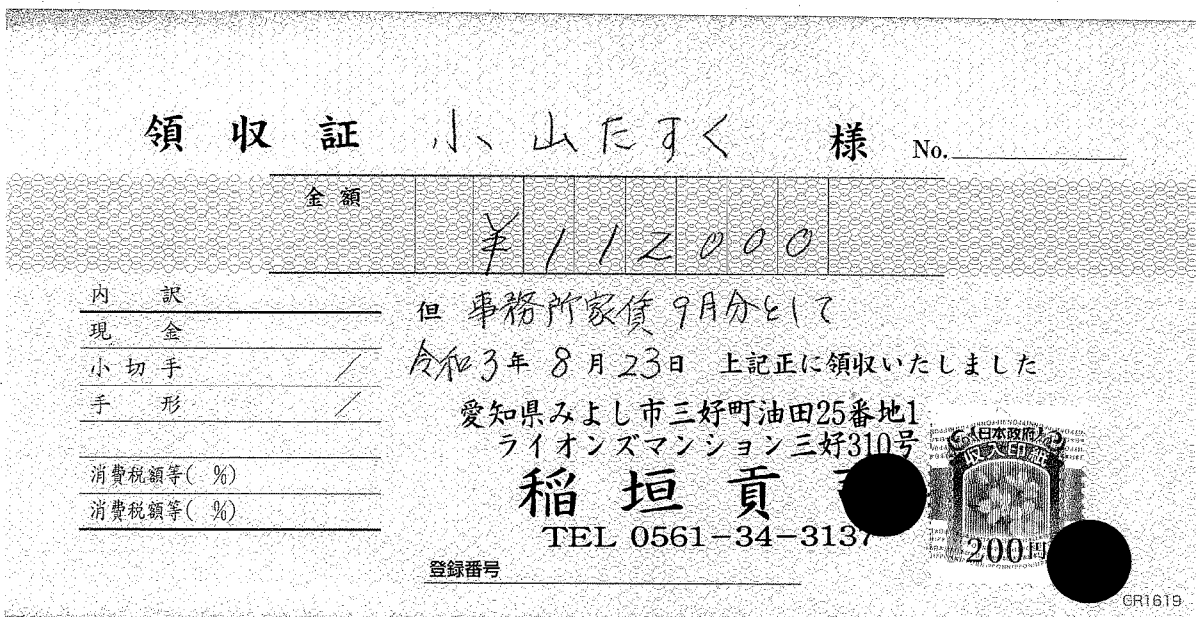 領収証 小山たすく 様 No.
金額 ¥112000
内訳
現金
小切手 /
手形 /
消費税額等( %)
消費税額等( %)
但 事務所家賃9月分として
令和3年8月23日 上記正に領収いたしました
愛知県みよし市三好町油田25番地1
ライオンズマンション三好310号
稲垣貢
TEL 0561-34-3137
登録番号
日本政府
収入印紙
200円
GR1619